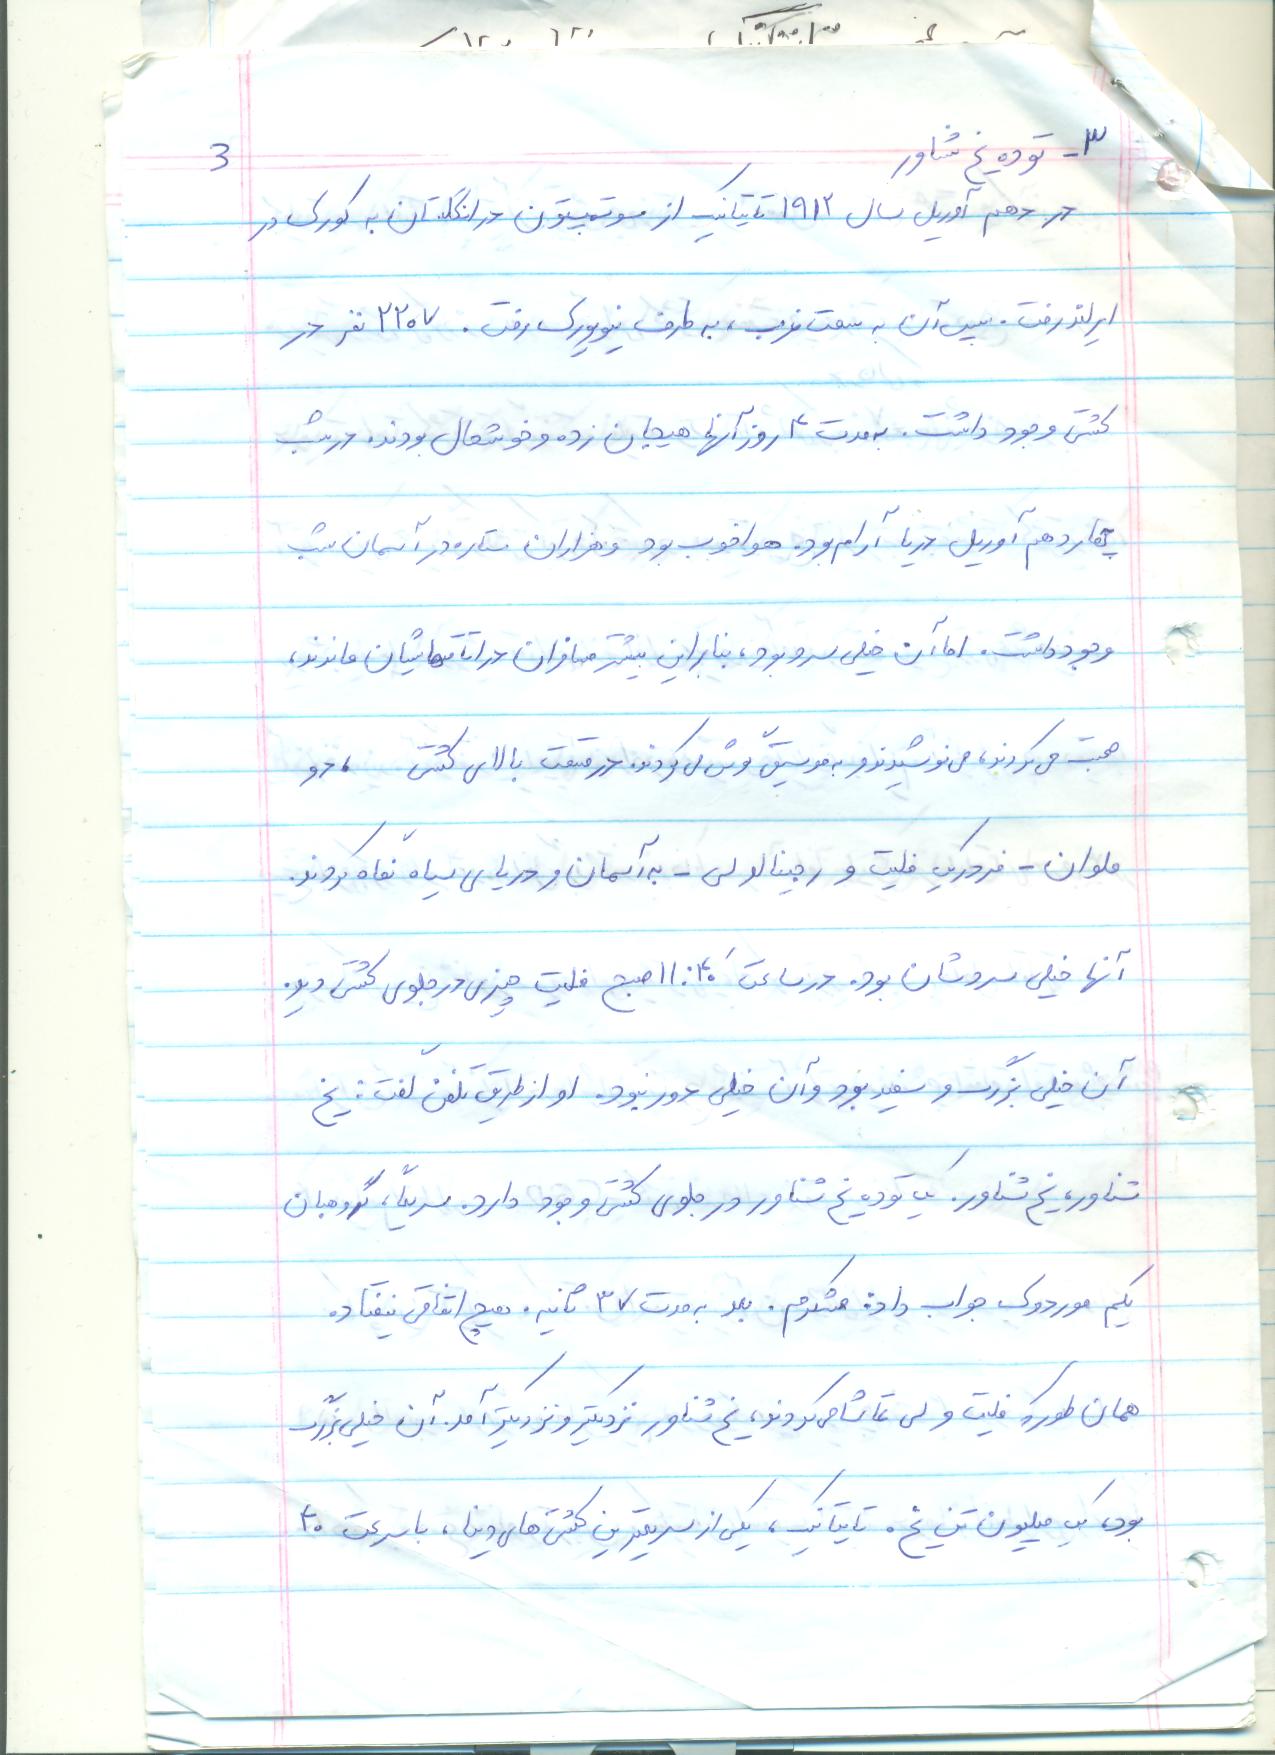 ۳- توده یخ شناور
3
در دهم آوریل سال ۱۹۱۲ تایتانیک از سوتهمپتون در انگلستان به کورک در
ایرلند رفت. سپس آن به سمت غرب، به طرف نیویورک رفت. ۲۲۰۷ نفر در
کشتی وجود داشت. به مدت ۴ روز آنها هیجان زده و خوشحال بودند. در شب
چهاردهم آوریل دریا آرام بود. هوا خوب بود و هزاران ستاره در آسمان شب
وجود داشت. اما آن خیلی سرد بود، بنابراین بیشتر مسافران در اتاقهایشان ماندند،
صحبت می کردند، می نوشیدند و به موسیقی گوش می کردند. در قسمت بالای کشتی، دو
ملوان - فردریک فلیت و رجینالد لی - به آسمان و دریای سیاه نگاه کردند.
آنها خیلی سردشان بود. در ساعت ۱۱:۴۰ صبح فلیت چیزی در جلوی کشتی دید.
آن خیلی بزرگ و سفید بود و آن خیلی دور نبود. او از طریق تلفن گفت: یخ
شناور، یخ شناور. یک توده یخ شناور در جلوی کشتی وجود دارد. سریعاً، گروهبان
یکم موردوک جواب داد: متشکرم. بعد به مدت ۳۷ ثانیه. هیچ اتفاقی نیفتاد.
همان طور که فلیت و لی تماشا می کردند، یخ شناور نزدیکتر و نزدیکتر آمد. آن خیلی بزرگ
بود، یک میلیون تن یخ. تایتانیک، یکی از سریعترین کشتی های دینا، با سرعت ۴۰